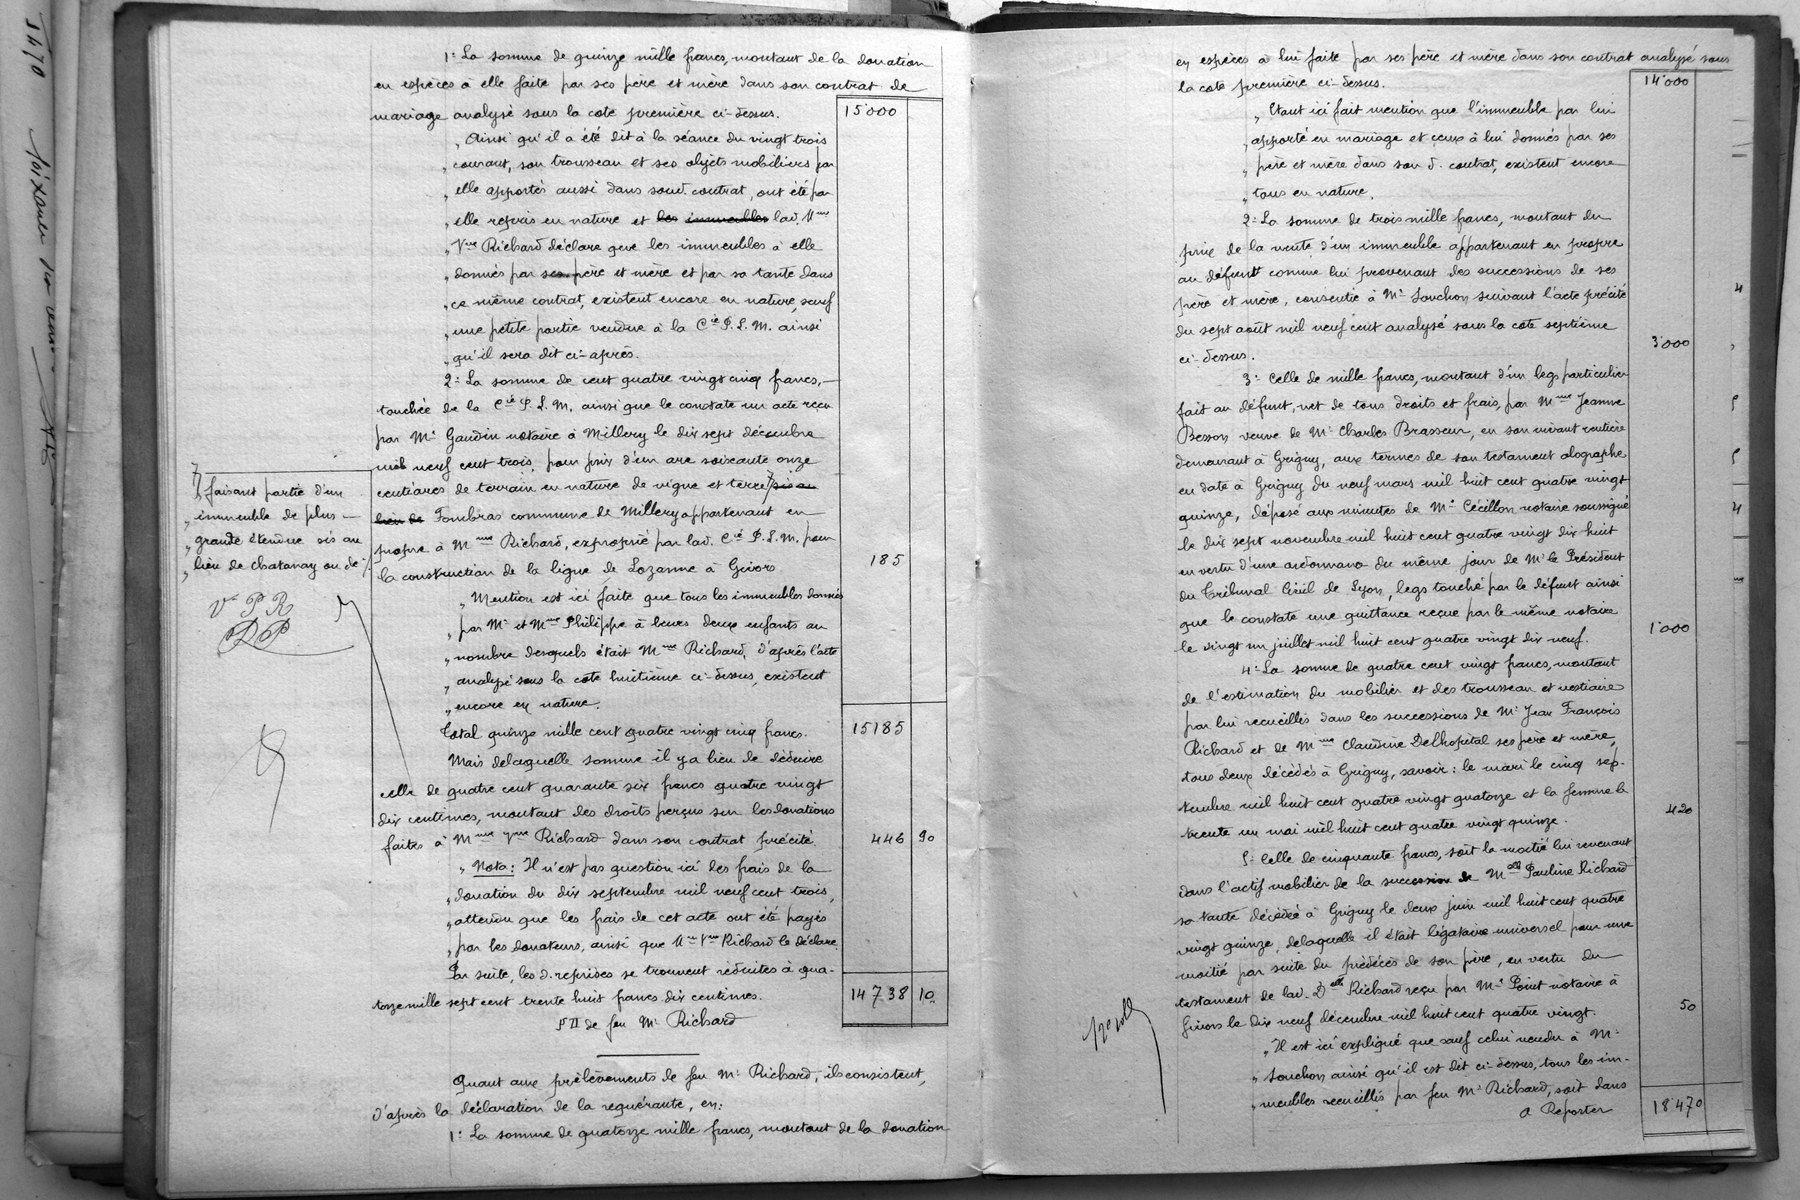 1° La somme de quinze mille francs, montant de la donation
en espèces à elle faite par ses père et mère dans son contrat de
mariage analysé sous la cote première ci-dessus. 15'000
„ Ainsi qu'il a été dit à la séance du vingt trois
„ courant, son trousseau et ses objets mobiliers par
„ elle apportés aussi dans soud. contrat, ont été par
„ elle repris en nature et les immeubles lad. Mme
„ Vve Richard déclare que les immeubles à elle
„ donnés par ses père et mère et par sa tante dans
„ ce même contrat, existent encore en nature, sauf
„ une petite partie vendue à la Cie P. L. M. ainsi
„ qu'il sera dit ci-après.
2° La somme de cent quatre vingt cinq francs,—
touchée de la Cie P. L. M. ainsi que le constate un acte reçu
par Me Gaudin notaire à Millery le dix sept décembre
mil neuf cent trois, pour prix d'un are soixante onze
centiares de terrain en nature de vigne et terre, sis au
lieu de Fombras commune de Millery appartenant en
propre à Mme Richard, exproprié par lad. Cie P. L. M. pour
la construction de la ligne de Lozanne à Givors 185
„ Mention est ici faite que tous les immeubles donnés
„ par Mr et Mme Philippe à leurs deux enfants au
„ nombre desquels était Mme Richard, d'après l'acte
„ analysé sous la cote huitième ci-dessus, existent
„ encore en nature.
Total quinze mille cent quatre vingt cinq francs. 15185
Mais delaquelle somme il y a lieu de déduire
celle de quatre cent quarante six francs quatre vingt
dix centimes, montant des droits perçus sur les donations
faites à Mme Vve Richard dans son contrat précité. 446 90
„ Nota: Il n'est pas question ici des frais de la
„ donation du dix septembre mil neuf cent trois,
„ attendu que les frais de cet acte ont été payés
„ par les donateurs, ainsi que Me Vve Richard le déclare.
Par suite, les d. reprises se trouvent réduites à qua-
torze mille sept cent trente huit francs dix centimes. 14738 10
§ II de feu Mr Richard
Quant aux prélèvements de feu Mr Richard, ils consistent,
d'après la déclaration de la requérante, en:
1° La somme de quatorze mille francs, montant de la donation
„ faisant partie d'un
„ immeuble de plus —
„ grande étendue sis au
„ lieu de Chatanay ou de
Ve P R
DP
en espèces à lui faite par ses père et mère dans son contrat analysé sous
la cote première ci-dessus. 14'000
„ Étant ici fait mention que l'immeuble par lui
„ apporté en mariage et ceux à lui donnés par ses
„ père et mère dans son d. contrat, existent encore
„ tous en nature.
2° La somme de trois mille francs, montant du
prix de la vente d'un immeuble appartenant en propre
au défunt comme lui provenant des successions de ses
père et mère, consentie à Mr Souchon suivant l'acte précité
du sept août mil neuf cent analysé sous la cote septième
ci-dessus. 3'000
3° Celle de mille francs, montant d'un legs particulier
fait au défunt, net de tous droits et frais, par Mme Jeanne
Besson veuve de Mr Charles Brasseur, en son vivant rentière
demeurant à Grigny, aux termes de son testament olographe
en date à Grigny du neuf mars mil huit cent quatre vingt
quinze, déposé aux minutes de Me Cécillon notaire soussigné
le dix sept novembre mil huit cent quatre vingt dix huit
en vertu d'une ordonnance du même jour de Mr le Président
du Tribunal Civil de Lyon, legs touché par le défunt ainsi
que le constate une quittance reçue par le même notaire
le vingt un juillet mil huit cent quatre vingt dix neuf. 1'000
4° La somme de quatre cent vingt francs, montant
de l'estimation du mobilier et des trousseau et vestiaire
par lui recueillis dans les successions de Mr Jean François
Richard et de Mme Claudine Delhopital ses père et mère,
tous deux décédés à Grigny, savoir: le mari le cinq sep-
tembre mil huit cent quatre vingt quatorze et la femme le
trente un mai mil huit cent quatre vingt quinze. 420
5° Celle de cinquante francs, soit la moitié lui revenant
dans l'actif mobilier de la succession de Melle Pauline Richard
sa tante décédée à Grigny le deux juin mil huit cent quatre
vingt quinze, delaquelle il était légataire universel pour une
moitié par suite du prédécès de son père, en vertu du
testament de lad. Delle Richard reçu par Me Point notaire à
Givors le dix neuf décembre mil huit cent quatre vingt. 50
„ Il est ici expliqué que sauf celui vendu à Mr
„ Souchon ainsi qu'il est dit ci-dessus, tous les im-
„ meubles recueillis par feu Mr Richard, soit dans
A Reporter 18'470